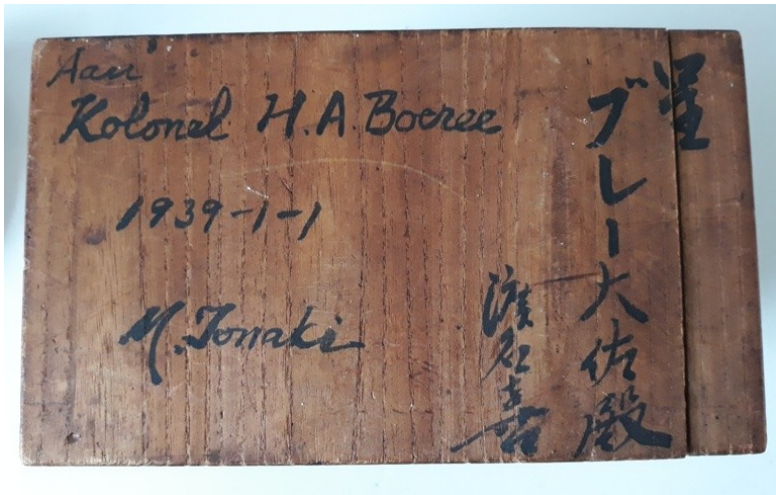 Aan
Kolonel H.A. Boeree
1939-1-1
M. Tonaki
呈
ブレー大佐殿
渡名喜